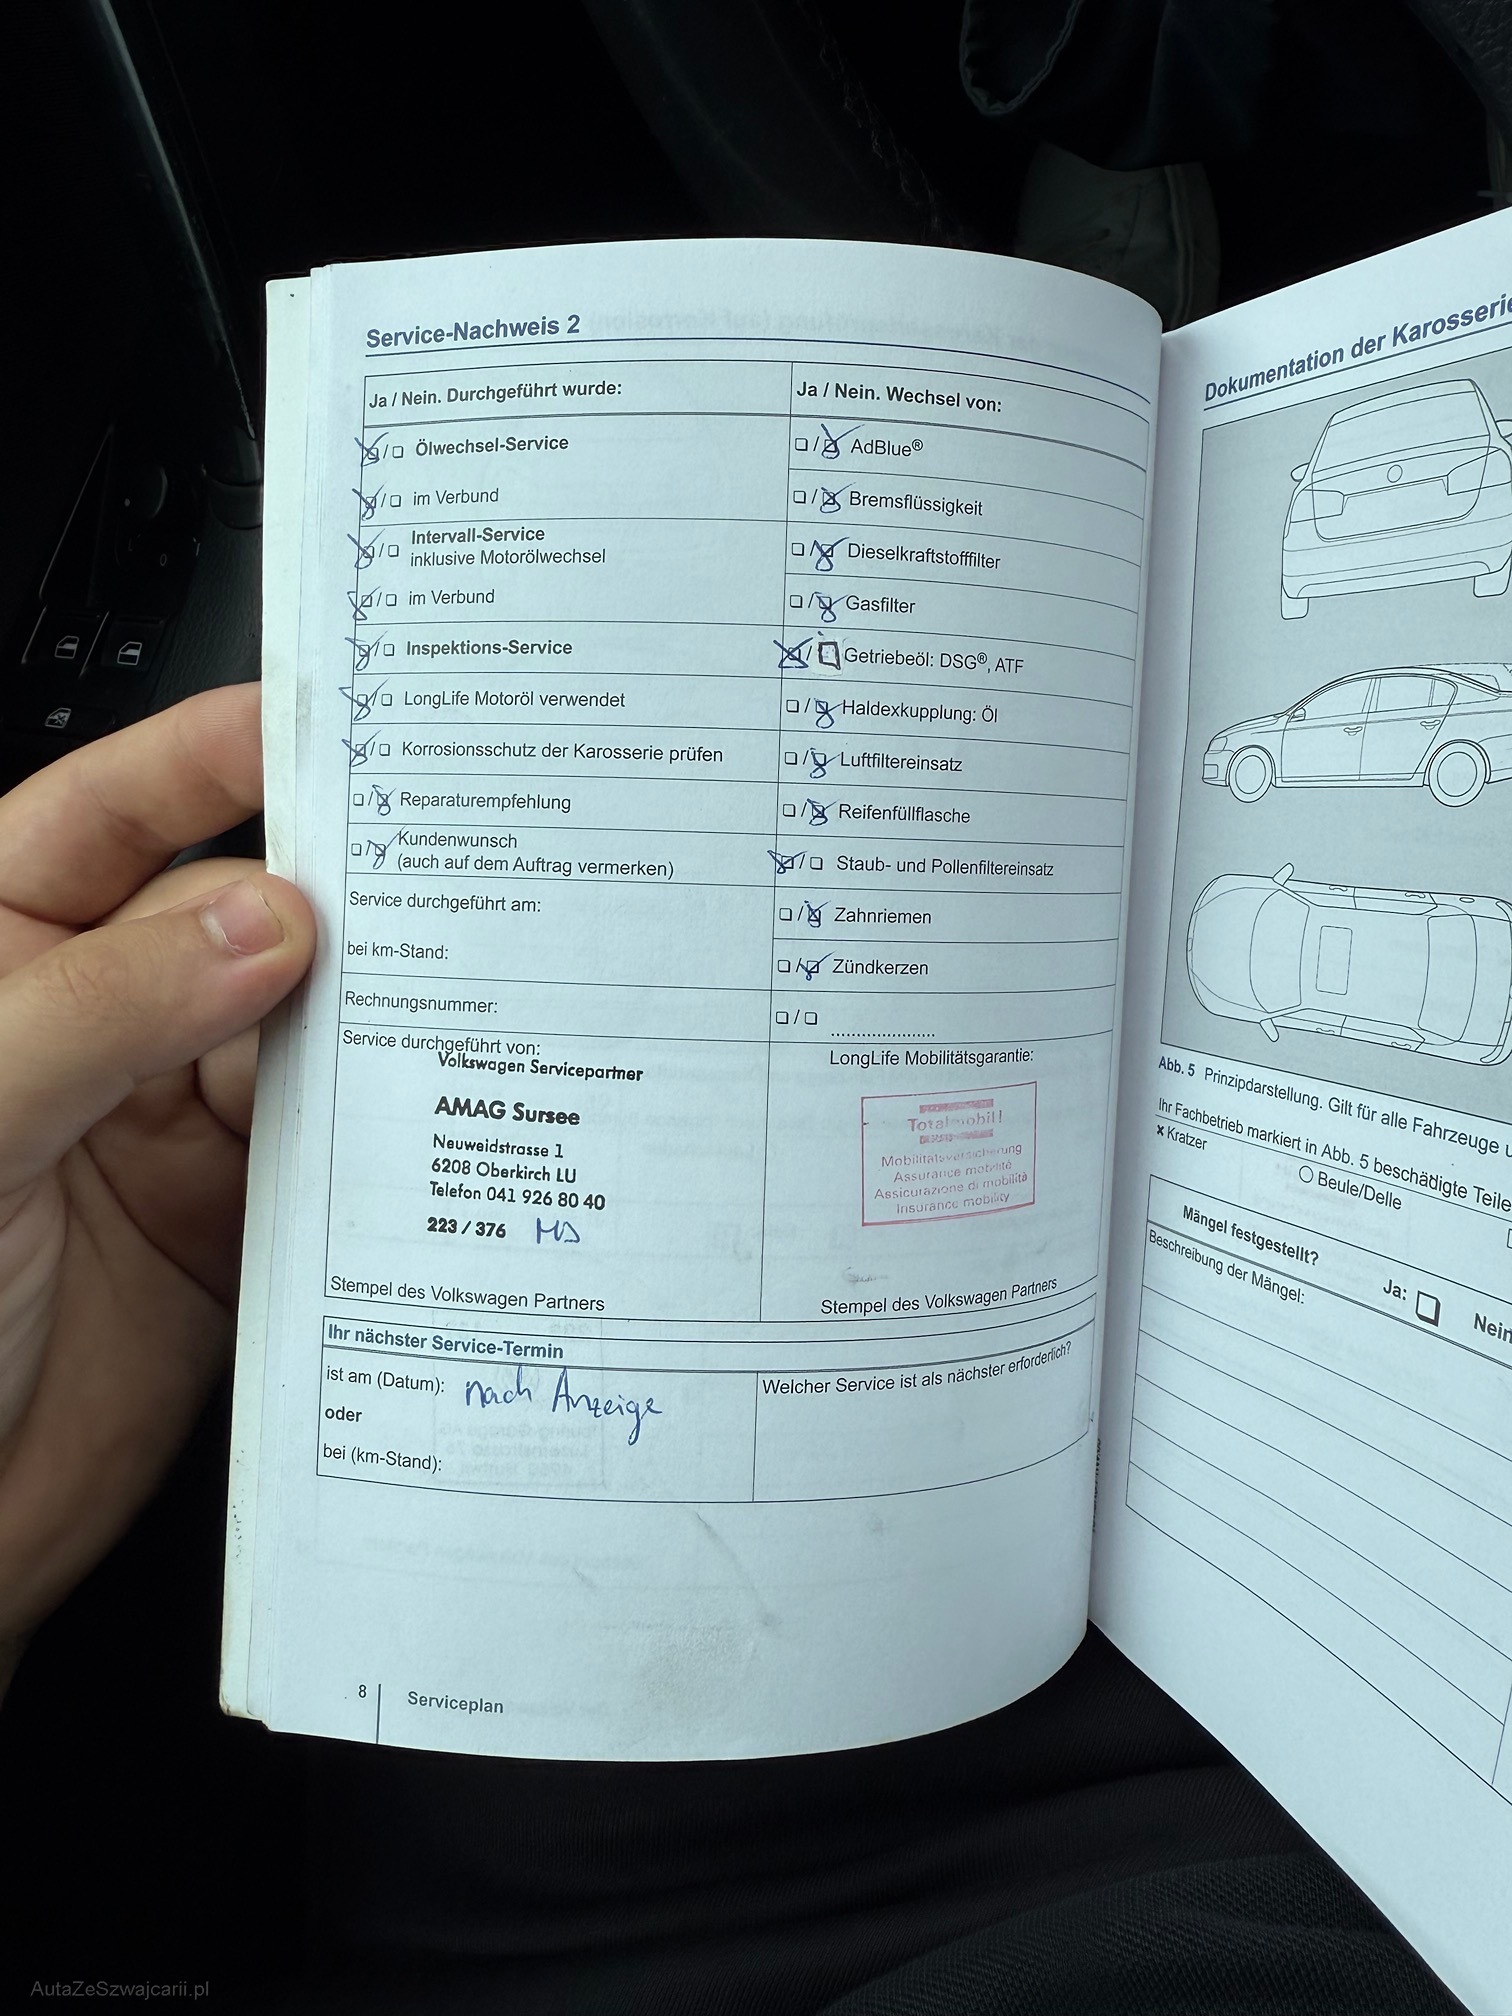 Service-Nachweis 2
Ja / Nein. Durchgeführt wurde:
Ölwechsel-Service
im Verbund
Intervall-Service
inklusive Motorölwechsel
im Verbund
Inspektions-Service
LongLife Motoröl verwendet
Korrosionsschutz der Karosserie prüfen
Reparaturempfehlung
Kundenwunsch
(auch auf dem Auftrag vermerken)
Service durchgeführt am:
bei km-Stand:
Rechnungsnummer:
Service durchgeführt von:
Volkswagen Servicepartner
AMAG Sursee
Neuweidstrasse 1
6208 Oberkirch LU
Telefon 041 926 80 40
223 / 376 MD
Stempel des Volkswagen Partners
Ja / Nein. Wechsel von:
AdBlue®
Bremsflüssigkeit
Dieselkraftstofffilter
Gasfilter
Getriebeöl: DSG®, ATF
Haldexkupplung: Öl
Luftfiltereinsatz
Reifenfüllflasche
Staub- und Pollenfiltereinsatz
Zahnriemen
Zündkerzen
LongLife Mobilitätsgarantie:
Totalmobil!
Mobilitätsversicherung
Assurance mobilité
Assicurazione di mobilità
Insurance mobility
Stempel des Volkswagen Partners
Ihr nächster Service-Termin
ist am (Datum): nach Anzeige
oder
bei (km-Stand):
Welcher Service ist als nächster erforderlich?
8 Serviceplan
Dokumentation der Karosserie
Abb. 5 Prinzipdarstellung. Gilt für alle Fahrzeuge
Ihr Fachbetrieb markiert in Abb. 5 beschädigte Teile
× Kratzer
Beule/Delle
Mängel festgestellt?
Ja:
Nein
Beschreibung der Mängel:
AutaZeSzwajcarii.pl